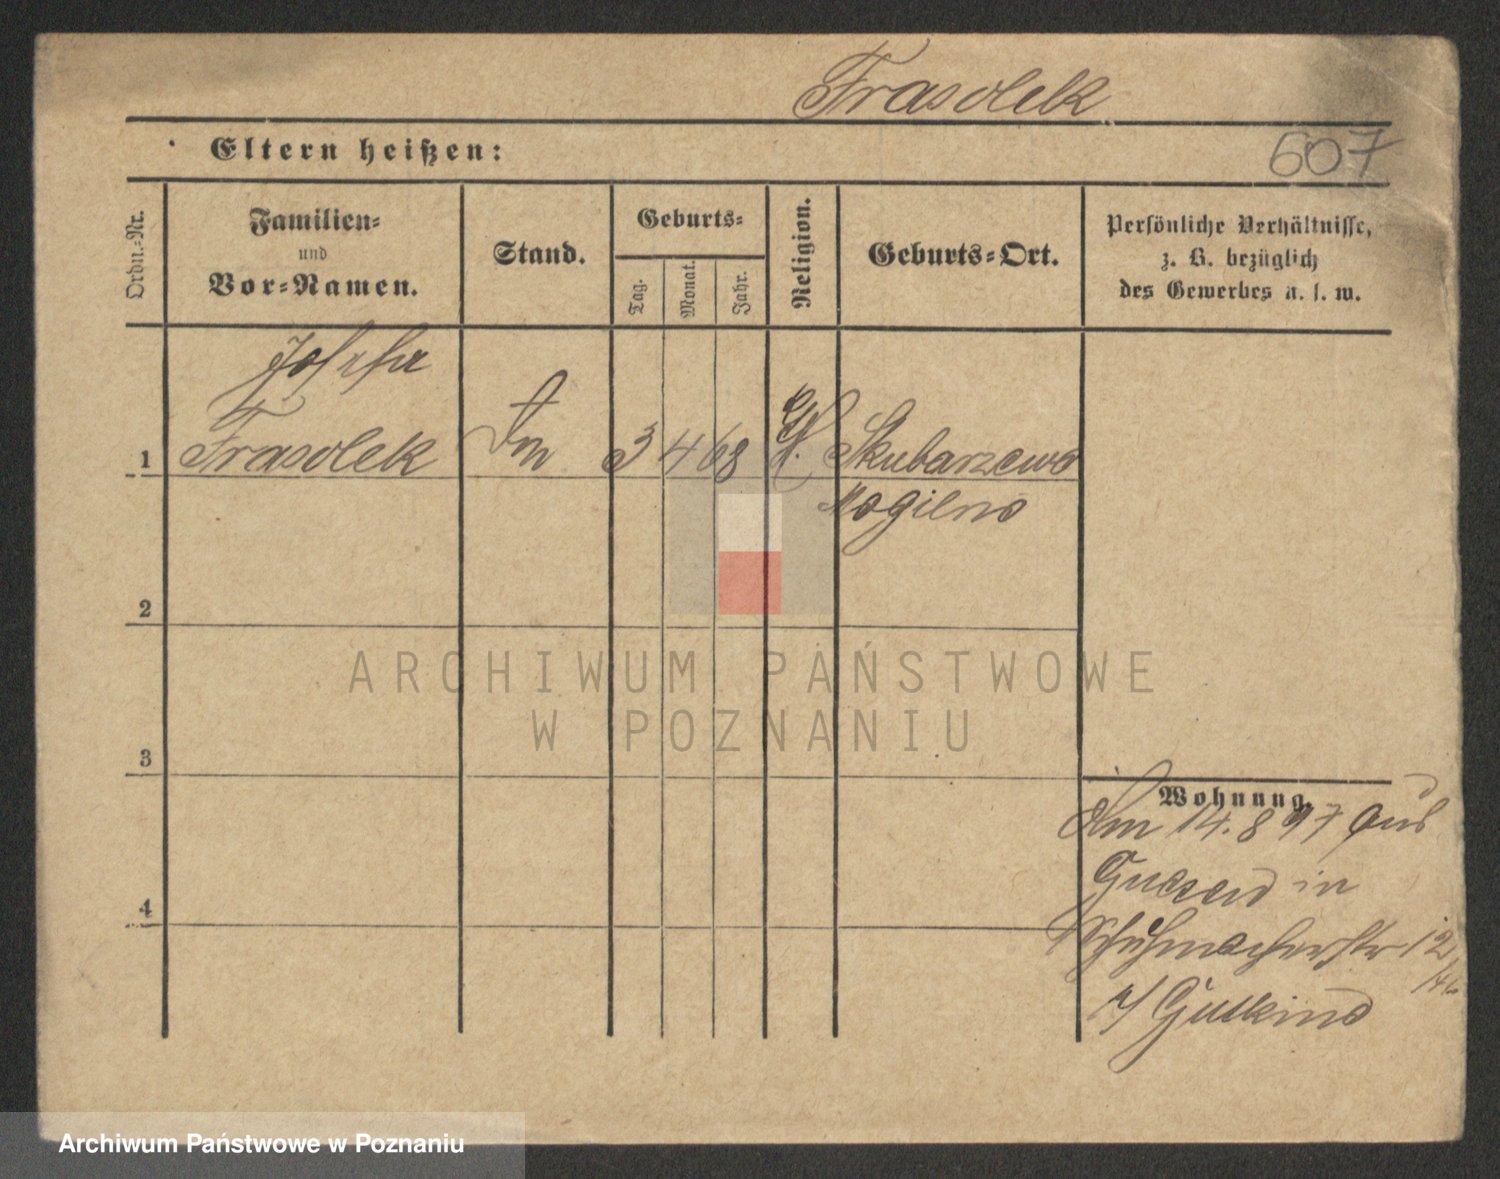 Frasolek
Eltern heißen:
607
Ordn.-Nr.
Familien-
und
Vor-Namen.
Stand.
Geburts-
Tag.
Monat.
Jahr.
Religion.
Geburts-Ort.
Persönliche Verhältnisse,
z. B. bezüglich
des Gewerbes u. s. w.
1
Frasolek
3 4 68
K.
Skubarzewo
Mogilno
2
3
4
Wohnung.
Am 14.8 97 aus
Gnesen in
Schuhmacherstr 12
Gutkind
ARCHIWUM PAŃSTWOWE
W POZNANIU
Archiwum Państwowe w Poznaniu